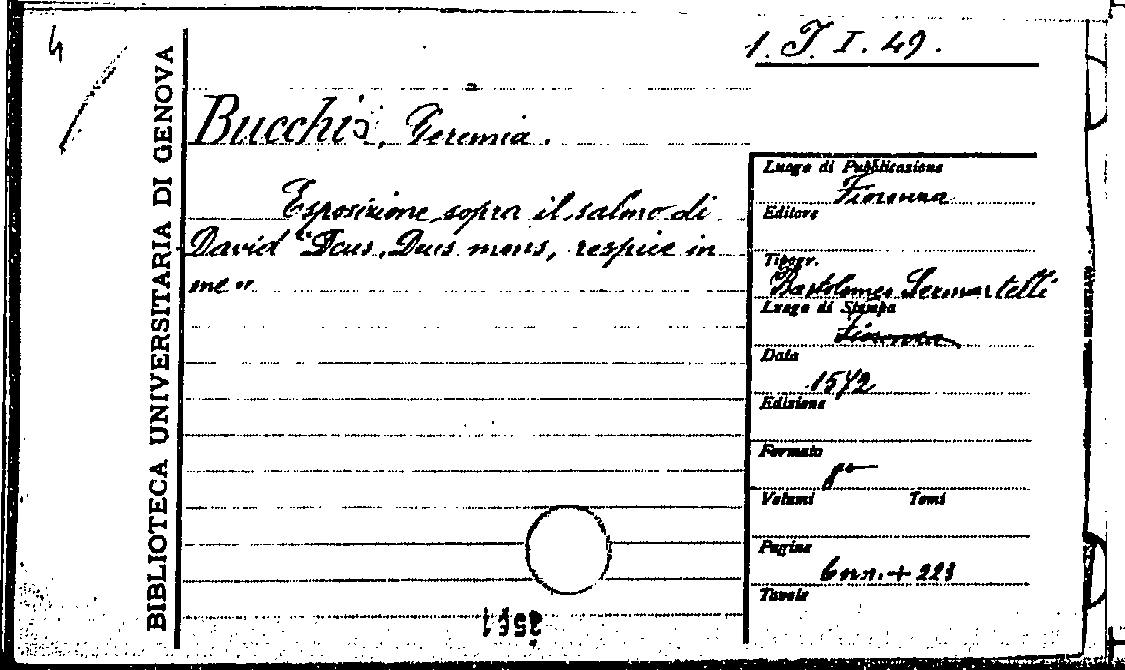 4
1. J. I. 49.
BIBLIOTECA UNIVERSITARIA DI GENOVA
Bucchi, Geremia.
Esposizione sopra il salmo di
David "Deus, Deus meus, respice in
me"
Luogo di Pubblicazione
Fiorenza
Editore
Tipogr.
Bartolomeo Sermartelli
Luogo di Stampa
Fiorenza
Data
1572
Edizione
Formato
8°
Volumi Tomi
Pagine
6 nn. + 223
Tavole